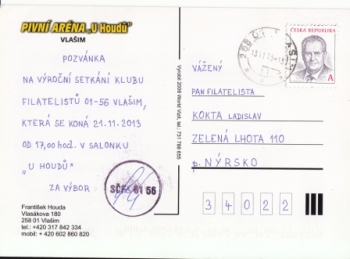 PIVNÍ ARÉNA „U Houdů"
VLAŠIM
POZVÁNKA
NA VÝROČNÍ SETKÁNÍ KLUBU
FILATELISTŮ 01-56 VLAŠIM,
KTERÁ SE KONÁ 21.11.2013
OD 17,00 hod. V SALONKU
„U HOUDŮ"
ZA VÝBOR
SČF 01 56
František Houda
Vlasákova 180
258 01 Vlašim
tel.: +420 317 842 334
mobil: + 420 602 860 820
Vydal 2008 World Vall, tel. 731 788 655
258 01
ČESKÁ REPUBLIKA
A
VÁŽENÝ
PAN FILATELISTA
KOKTA LADISLAV
ZELENÁ LHOTA 110
p. NÝRSKO
34022